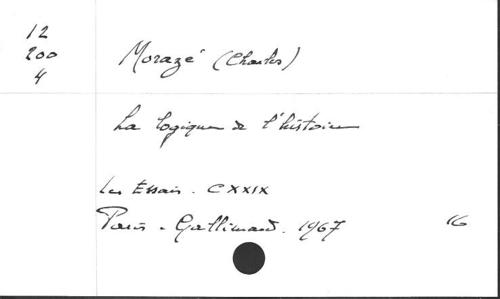 12
200
4
Morazé (Charles)
La logique de l'histoire
Les Essais. CXXIX
Paris - Gallimard. 1967 16